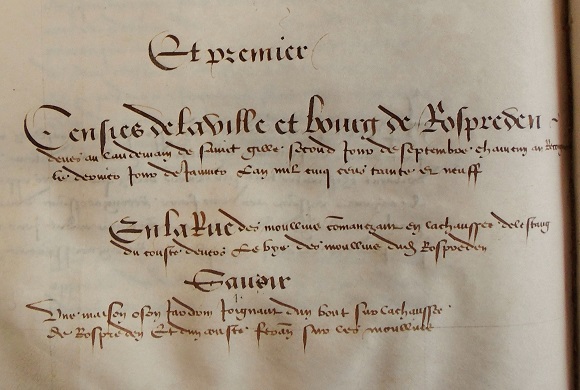 Et premier
Censies de la ville et bourg de Rospreden
deues au landemain de sainct gille second jour de septembre chaincun an
le dernier jour de Janvier Lan mil cinq cens trante et neuff
En la Rue des moullins comanczant en la chaussee de lestang
du couste devers le bye des moullins dud Rospreden
Savoir
Une maison o son Jardrin Joignant dun bout sur la chaussee
de Rospreden Et dun couste sur les moullins